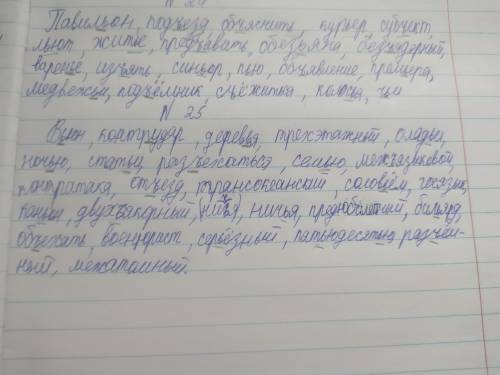 N 24
Павильон, подъезд, объяснить, курьер, субъект,
льют, житьё, предъявить, обезьяна, безъядерный,
варенье, изъять, синьор, пью, объявление, премьера,
медвежьи, подъёмник, съёжился, колосья, чьи
N 25
Вьюн, контрудар, деревья, трехэтажный, оладьи,
ночью, статьи, разъехаться, семью, межъязыковой,
контратака, отъезд, трансокеанский, соловьём, госязык,
каньон, двухъякорный, ничья, предюбилейный, бильярд,
объехать, военюрист, серьёзный, пятьюдесятью, разъём-
ный, межатомный.